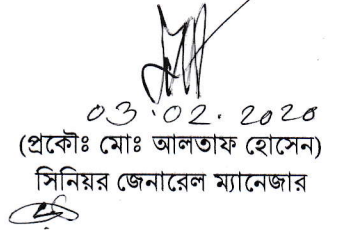 03.02.2020
(প্রকৌঃ মোঃ আলতাফ হোসেন)
সিনিয়র জেনারেল ম্যানেজার